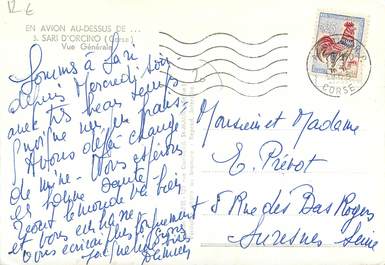 12 €
EN AVION AU-DESSUS DE ...
3. SARI D'ORCINO (Corse)
Vue Générale
CORSE
Sommes à Sari
depuis Mercredi soir
avec très beau temps
Avons déjà changé
de mine. Vous espérons
en bonne santé
tout le monde va bien
et vous embrasse
Vous écrirai plus longuement
Jacqueline
Monsieur et Madame
E. Prévot
8 Rue des Bas Rogers
Suresnes Seine